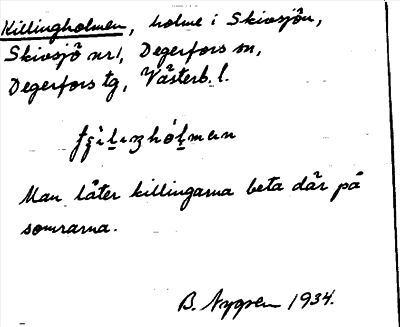 Killingholmen, holme i Skivsjön,
Skivsjö nr 1, Degerfors sn,
Degerfors tg, Västerb. l.
Man låter killingarna beta där på
somrarna.
B. Nygren 1934.